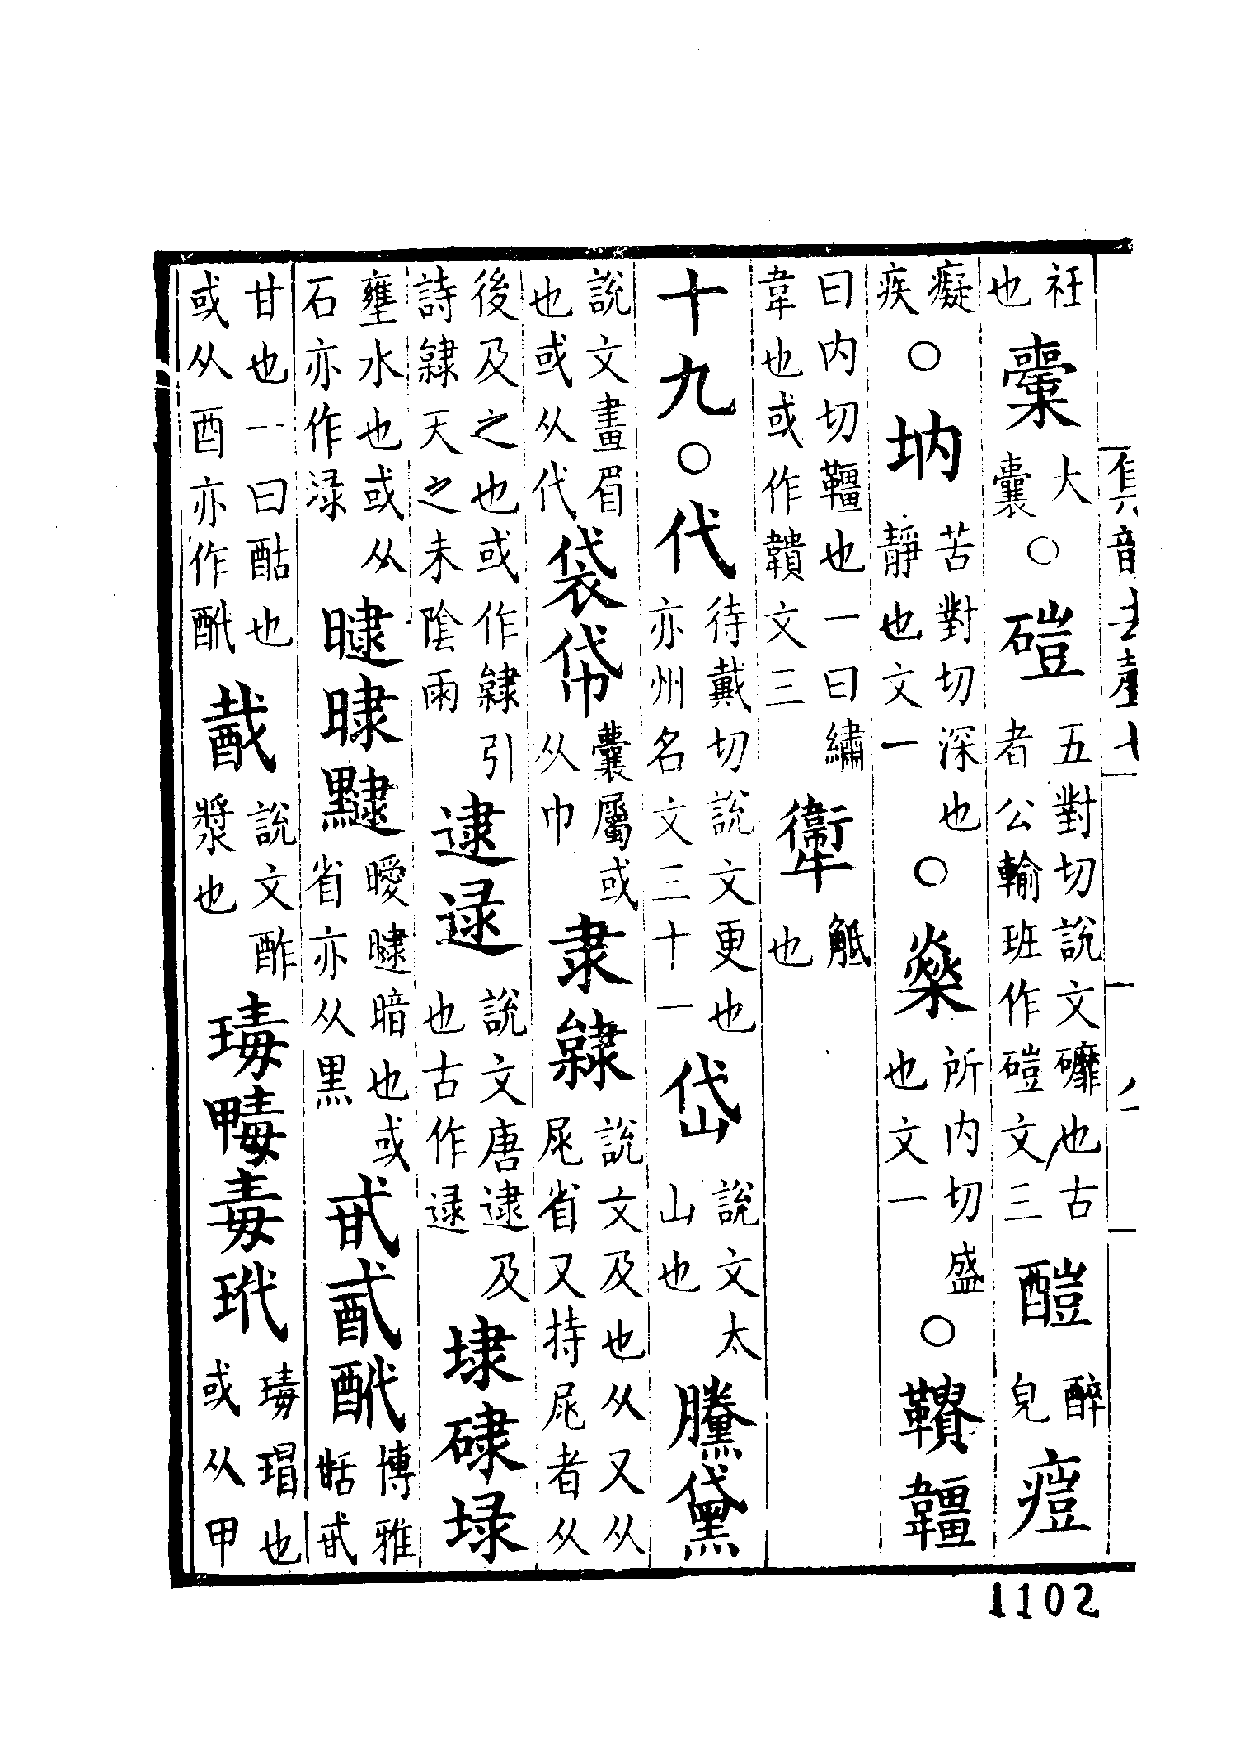 集韻去聲七
衽也櫜大囊○磑五對切說文䃺也古者公輸班作磑文三䤇醉皃𤸳
癡疾○苦對切深也靜也文一○燊所内切盛也文一○鞼韁
曰内切韁也一曰繡韋也或作韥文三𤜂觝也
十九○代待戴切說文更也亦州名文三十一岱說文太山也黱黛
說文畫眉也或从代袋帒囊屬或从巾隶隸說文及也从又从尾省又持尾者从
後及之也或作隸引詩隸天之未陰雨逮逯說文唐逮及也古作逯埭碌
壅水也或从石亦作淥曃靉曃暗也或省亦从黑甙酖博雅甛甙
甘也一曰酤也或从酉亦作酖酨說文酢漿也瑇毒玳瑇瑁也或从甲
1102